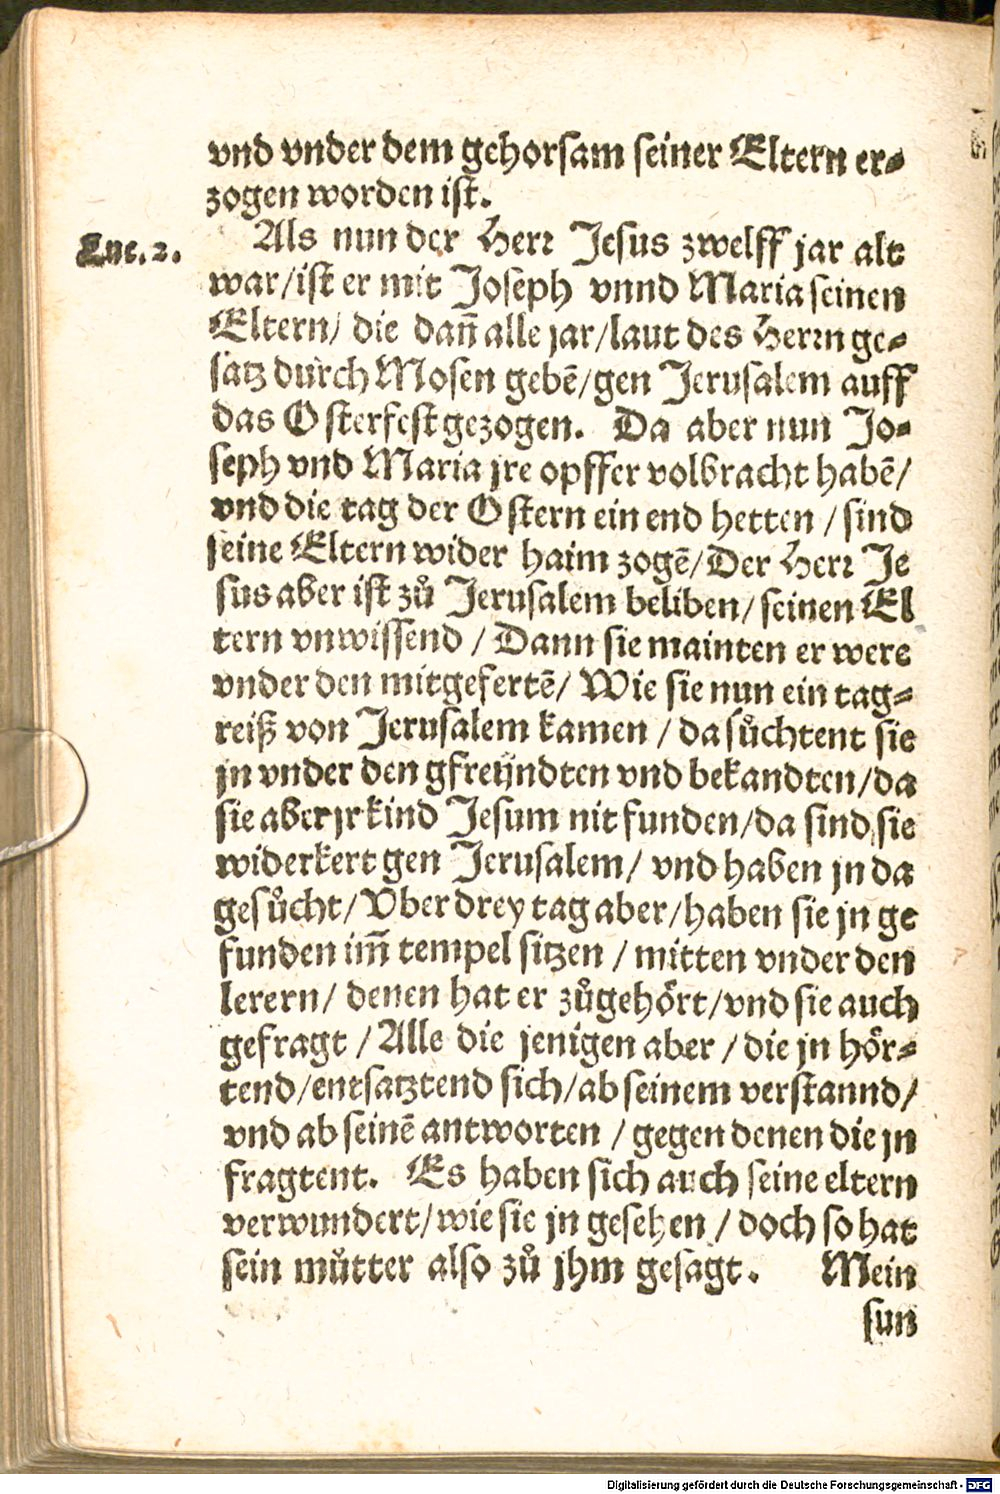 vnd vnder dem gehorsam seiner Eltern er⸗
zogen worden ist.
Luc. 2.
Als nun der Herr Jesus zwelff jar alt
war/ist er mit Joseph vnnd Maria seinen
Eltern/ die dañ alle jar/laut des Herrn ge⸗
satz durch Mosen gebē/gen Jerusalem auff
das Osterfest gezogen. Da aber nun Jo⸗
seph vnd Maria jre opffer volbracht habē/
vnd die tag der Ostern ein end hetten / sind
seine Eltern wider haim zogē/ Der Herr Je
sus aber ist zů Jerusalem beliben/ seinen El
tern vnwissend / Dann sie mainten er were
vnder den mitgefertē/ Wie sie nun ein tag⸗
reiß von Jerusalem kamen / da sůchtent sie
jn vnder den gfreÿndten vnd bekandten/da
sie aber jr kind Jesum nit funden/da sind sie
widerkert gen Jerusalem/ vnd haben jn da
gesůcht/ Vber drey tag aber/haben sie jn ge
funden im̃ tempel sitzen / mitten vnder den
lerern/ denen hat er zůgehoͤrt/vnd sie auch
gefragt / Alle die jenigen aber / die jn hoͤr⸗
tend/entsatztend sich/ab seinem verstannd/
vnd ab seinē antworten / gegen denen die jn
fragtent. Es haben sich auch seine eltern
verwundert/wie sie jn gesehen / doch so hat
sein můtter also zů jhm gesagt. Mein
sun
Digitalisierung gefördert durch die Deutsche Forschungsgemeinschaft - DFG